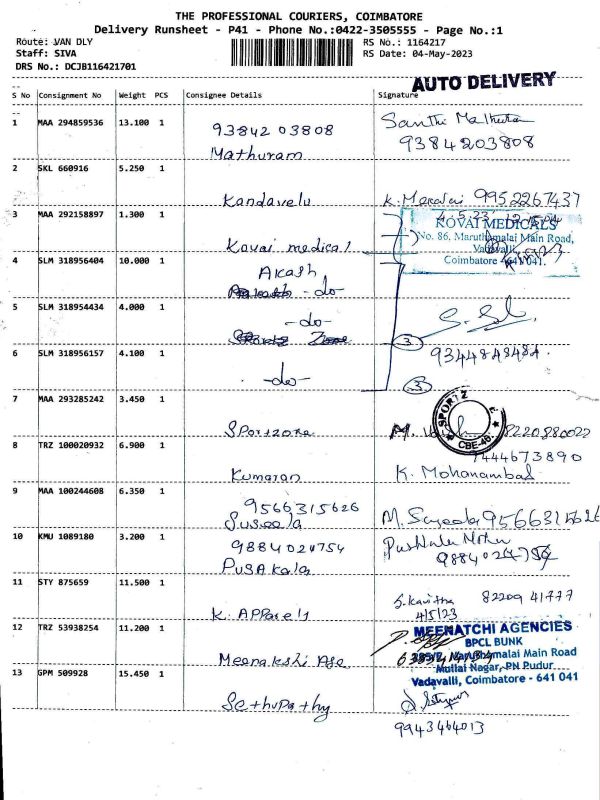 THE PROFESSIONAL COURIERS, COIMBATORE
Delivery Runsheet - P41 - Phone No.:0422-3505555 - Page No.:1
Route: VAN DLY
RS No.: 1164217
Staff: SIVA
RS Date: 04-May-2023
DRS No.: DCJB116421701
AUTO DELIVERY
S No Consignment No Weight PCS Consignee Details Signature
1 MAA 294859536 13.100 1 9384203808 Santhi
Mathuram 9384203808
2 SKL 660916 5.250 1
Kandavelu K. 9952267437
3 MAA 292158897 1.300 1
Kovai medical
KOVAI MEDICALS
No. 86, Maruthamalai Main Road,
Vadavalli,
Coimbatore - 641 041.
4 SLM 318956404 10.000 1 Akash
-do-
5 SLM 318954434 4.000 1 -do-
3
6 SLM 318956157 4.100 1 9344848484
-do- 3
7 MAA 293285242 3.450 1
SPORTZ
CBE-46
Sportzone M. 8220880022
8 TRZ 100020932 6.900 1 9444673890
Kumaran K. Mohanambal
9 MAA 100244608 6.350 1 9566315626
Suseela M. Suseela 9566315626
10 KMU 1089180 3.200 1 9884024754
Pusakala 9884024754
11 STY 875659 11.500 1 S. Kavitha 82209 41777
K. Apparels 4/5/23
12 TRZ 53938254 11.200 1
Meenakshi Age
MEENATCHI AGENCIES
BPCL BUNK
Maruthamalai Main Road
Mullai Nagar, PN Pudur
Vadavalli, Coimbatore - 641 041
13 GPM 509928 15.450 1
Sethupathy
9943464013